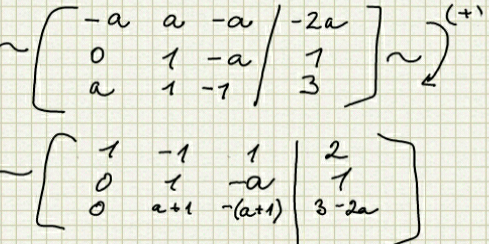 ~ -a a -a | -2a (+)
0 1 -a | 1 ~
a 1 -1 | 3
~ 1 -1 1 | 2
0 1 -a | 1
0 a+1 -(a+1) | 3-2a